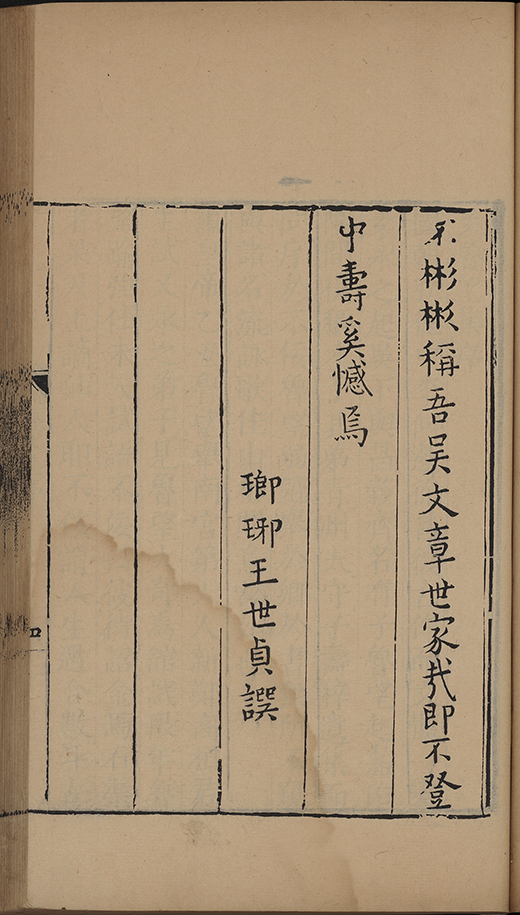 不彬彬稱吾吳文章世家㢤即不登
中壽奚憾焉
瑯琊王世貞譔